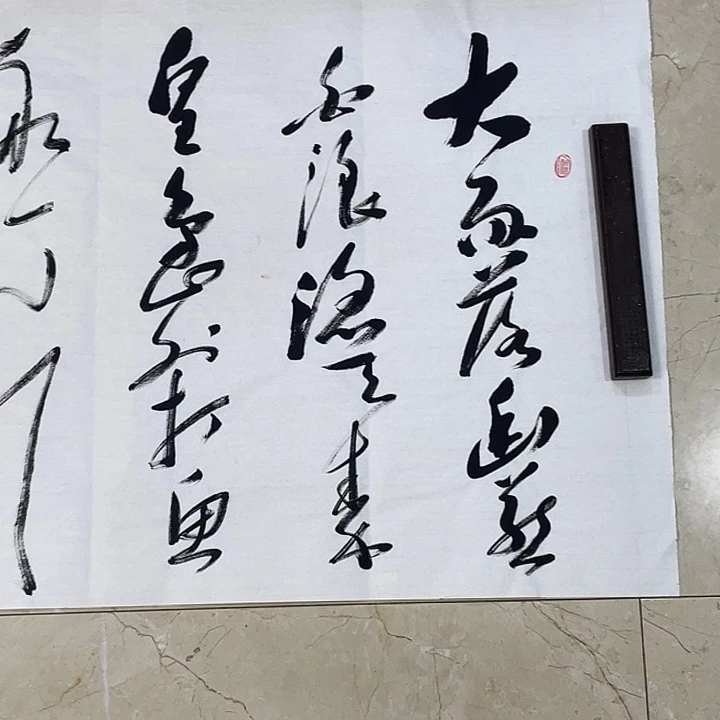 大雨落幽燕
白浪滔天秦
皇岛外打鱼
船一